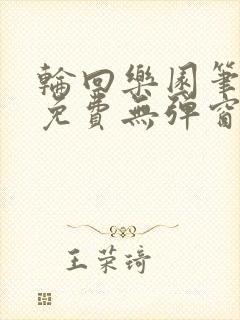 輪回樂園筆
免費無彈窗
王荣琦